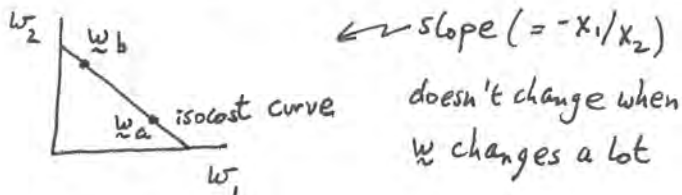 w₂
w̰ b
w̰ a
isocost curve
w₁
← slope (= -x₁/x₂)
doesn't change when
w̰ changes a lot